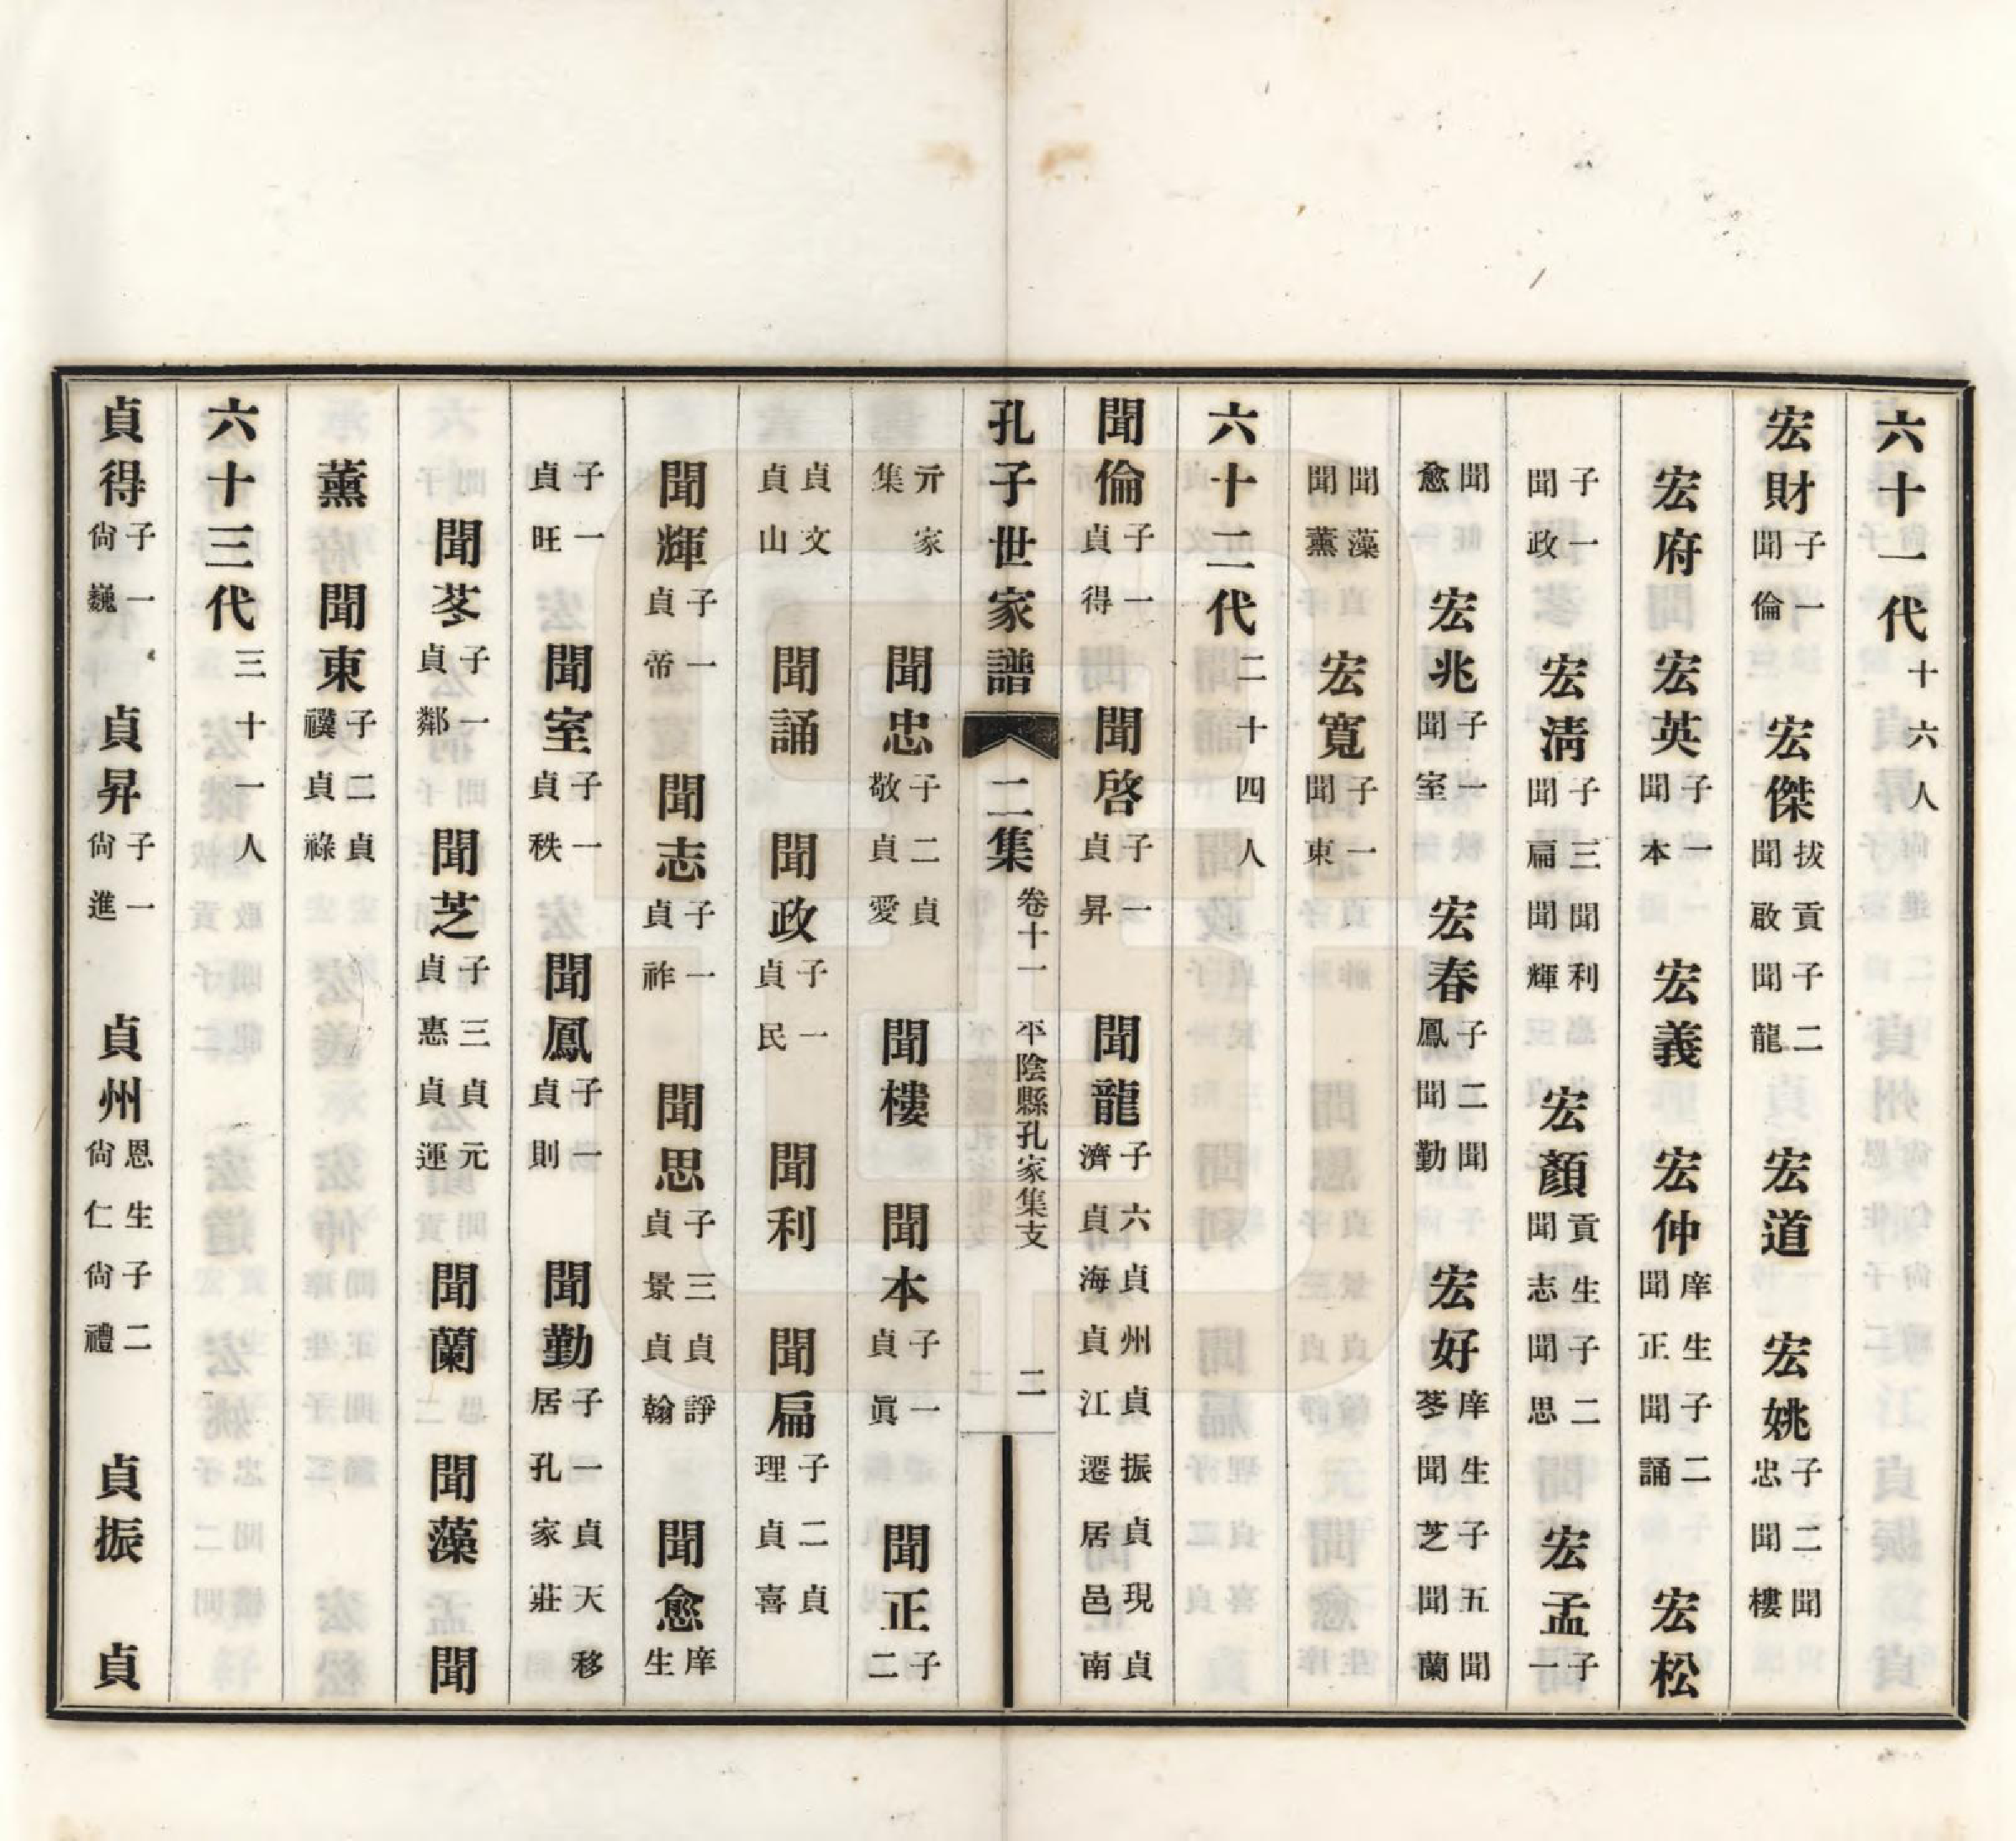 六十一代 十六人
宏財 子一聞倫 宏傑 拔貢子二聞啟聞龍 宏道 宏姚 子二聞忠聞樓
宏府 宏英 子一聞本 宏義 宏仲 庠生子二聞正聞誦 宏松
子一聞政 宏淸 子三聞利聞扁聞輝 宏顏 貢生子二聞志聞思 宏孟 子一
聞愈 宏兆 子一聞室 宏春 子二聞鳳聞勤 宏好 庠生子五聞苓聞芝聞蘭
聞藻聞薰 宏寬 子一聞東
六十二代 二十四人
聞倫 子一貞得 聞啓 子一貞昇 聞龍 子六貞州貞振貞現貞濟貞海貞江遷居邑南
孔子世家譜 二集 卷十一 平陰縣孔家集支 二
亓家集 聞忠 子二貞敬貞愛 聞樓 聞本 子一貞眞 聞正 子二
貞文貞山 聞誦 聞政 子一貞民 聞利 聞扁 子二貞理貞喜
聞輝 子一貞帝 聞志 子一貞祚 聞思 子三貞諍貞景貞翰 聞愈 庠生
子一貞旺 聞室 子一貞秩 聞鳳 子一貞則 聞勤 子一貞天移居孔家莊
聞苓 子一貞鄰 聞芝 子三貞元貞惠貞運 聞蘭 聞藻 聞
薰 聞東 子二貞禩貞祿
六十三代 三十一人
貞得 子一尙巍 貞昇 子一尙進 貞州 恩生子二尙仁尙禮 貞振 貞